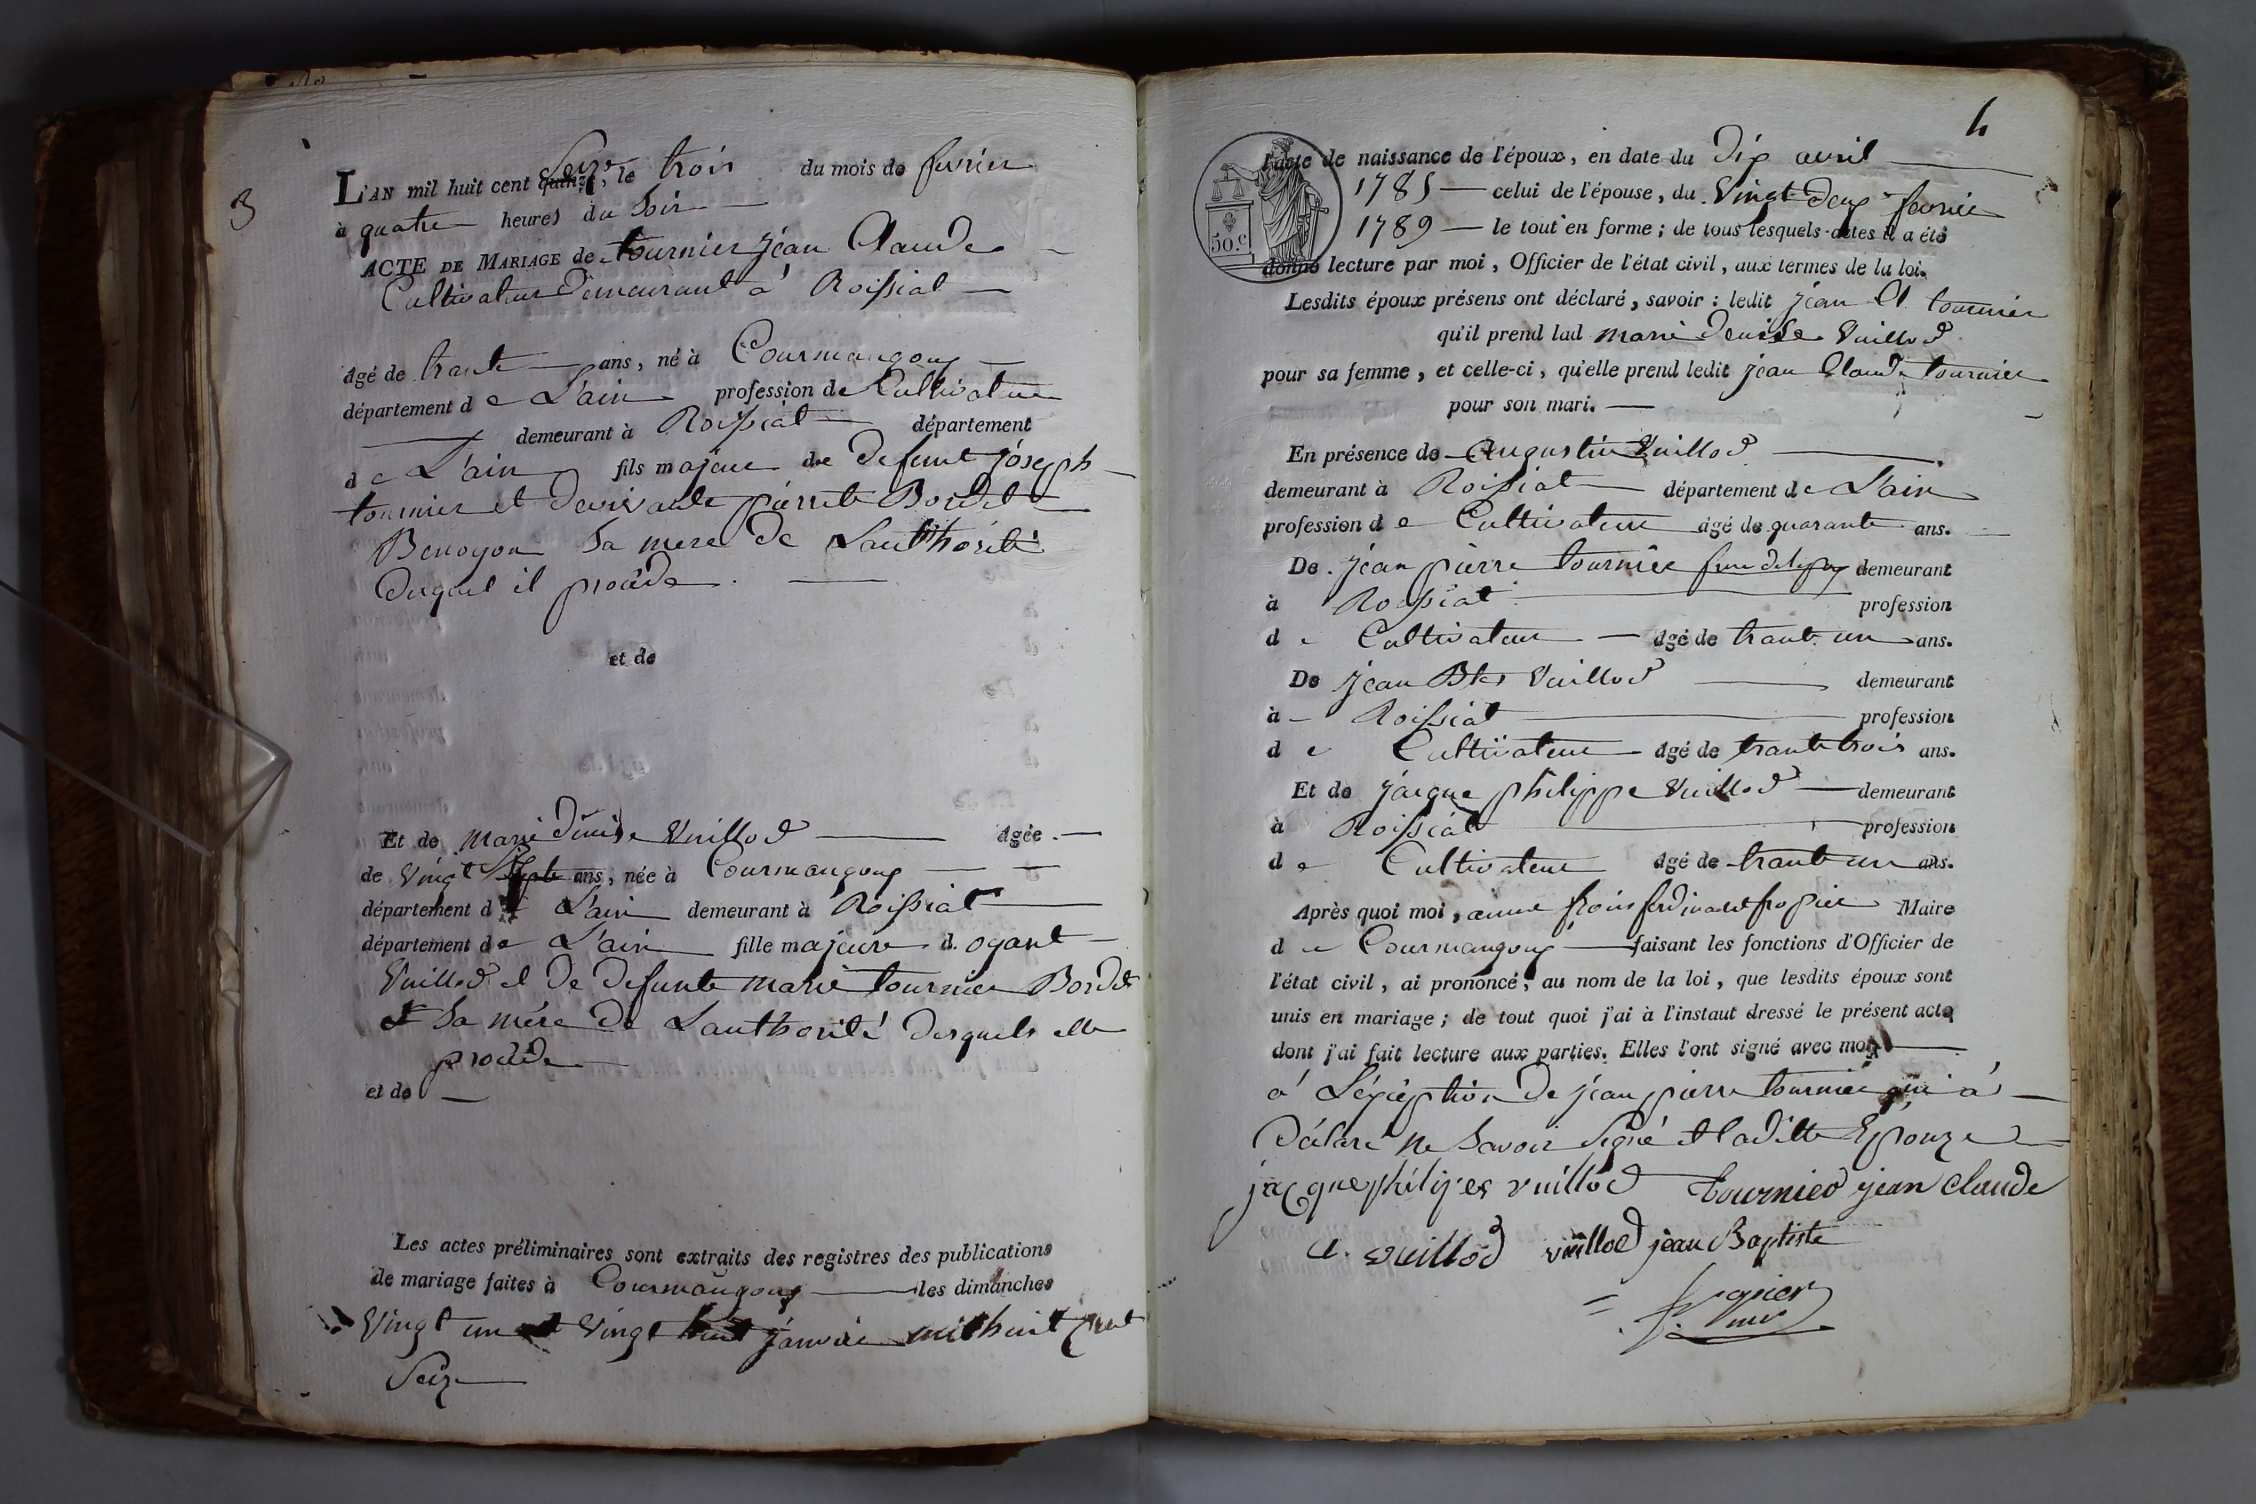 3
L'AN mil huit cent quinze, Seize le trois du mois de fevrier
à quatre heures du Soir
ACTE DE MARIAGE de tournier jean Claude
Cultivateur demeurant á Roissiat
âgé de trante ans, né à Courmangoux
département de L'ain profession de Cultivateur
demeurant à Roissiat département
de L'ain fils majeur de defunt joseph
tournier et de vivante pierrette Bordet
sa mere de Lauthorité
duquel il procede.
et de
Et de marie denise Vuillod âgée
de Vingt Sept ans, née à Courmangoux
département de L'ain demeurant à Roissiat
département de L'ain fille majeure d. oyant
Vuillod et de defunte marie tournier Bordet
et Sa mére de Lauthorité desquels elle
procede
et de
Les actes préliminaires sont extraits des registres des publications
de mariage faites à Courmangoux les dimanches
Vingt un et Vingt huit janvier mil huit cent
Seize
4
50.c
l'acte de naissance de l'époux, en date du dix avril
1785 celui de l'épouse, du Vingt deux fevrier
1789 le tout en forme ; de tous lesquels actes il a été
donné lecture par moi, Officier de l'état civil, aux termes de la loi.
Lesdits époux présens ont déclaré, savoir : ledit jean Cl. tournier
qu'il prend lad marie denise Vuillod
pour sa femme, et celle-ci, qu'elle prend ledit jean Claude tournier
pour son mari.
En présence de Augustin Vuillod
demeurant à Roissiat département de L'ain
profession de Cultivateur âgé de quarante ans.
De jean pierre tournier frere de lepoux demeurant
à Roissiat profession
de Cultivateur âgé de trante un ans.
De jean Btes Vuillod demeurant
à Roissiat profession
de Cultivateur âgé de trante trois ans.
Et de jacque philippe Vuillod demeurant
à Roissiat profession
de Cultivateur âgé de trante un ans.
Après quoi moi, anne frois ferdinand Maire
de Courmangoux faisant les fonctions d'Officier de
l'état civil, ai prononcé, au nom de la loi, que lesdits époux sont
unis en mariage ; de tout quoi j'ai à l'instaut dressé le présent acte
dont j'ai fait lecture aux parties. Elles l'ont signé avec moi
á Léxception de jean pierre tournier qui á
déclaré ne Savoir Signé et laditte Epouze
jacque philipes vuillod tournier jean claude
a. vuillod vuillod jean Baptiste